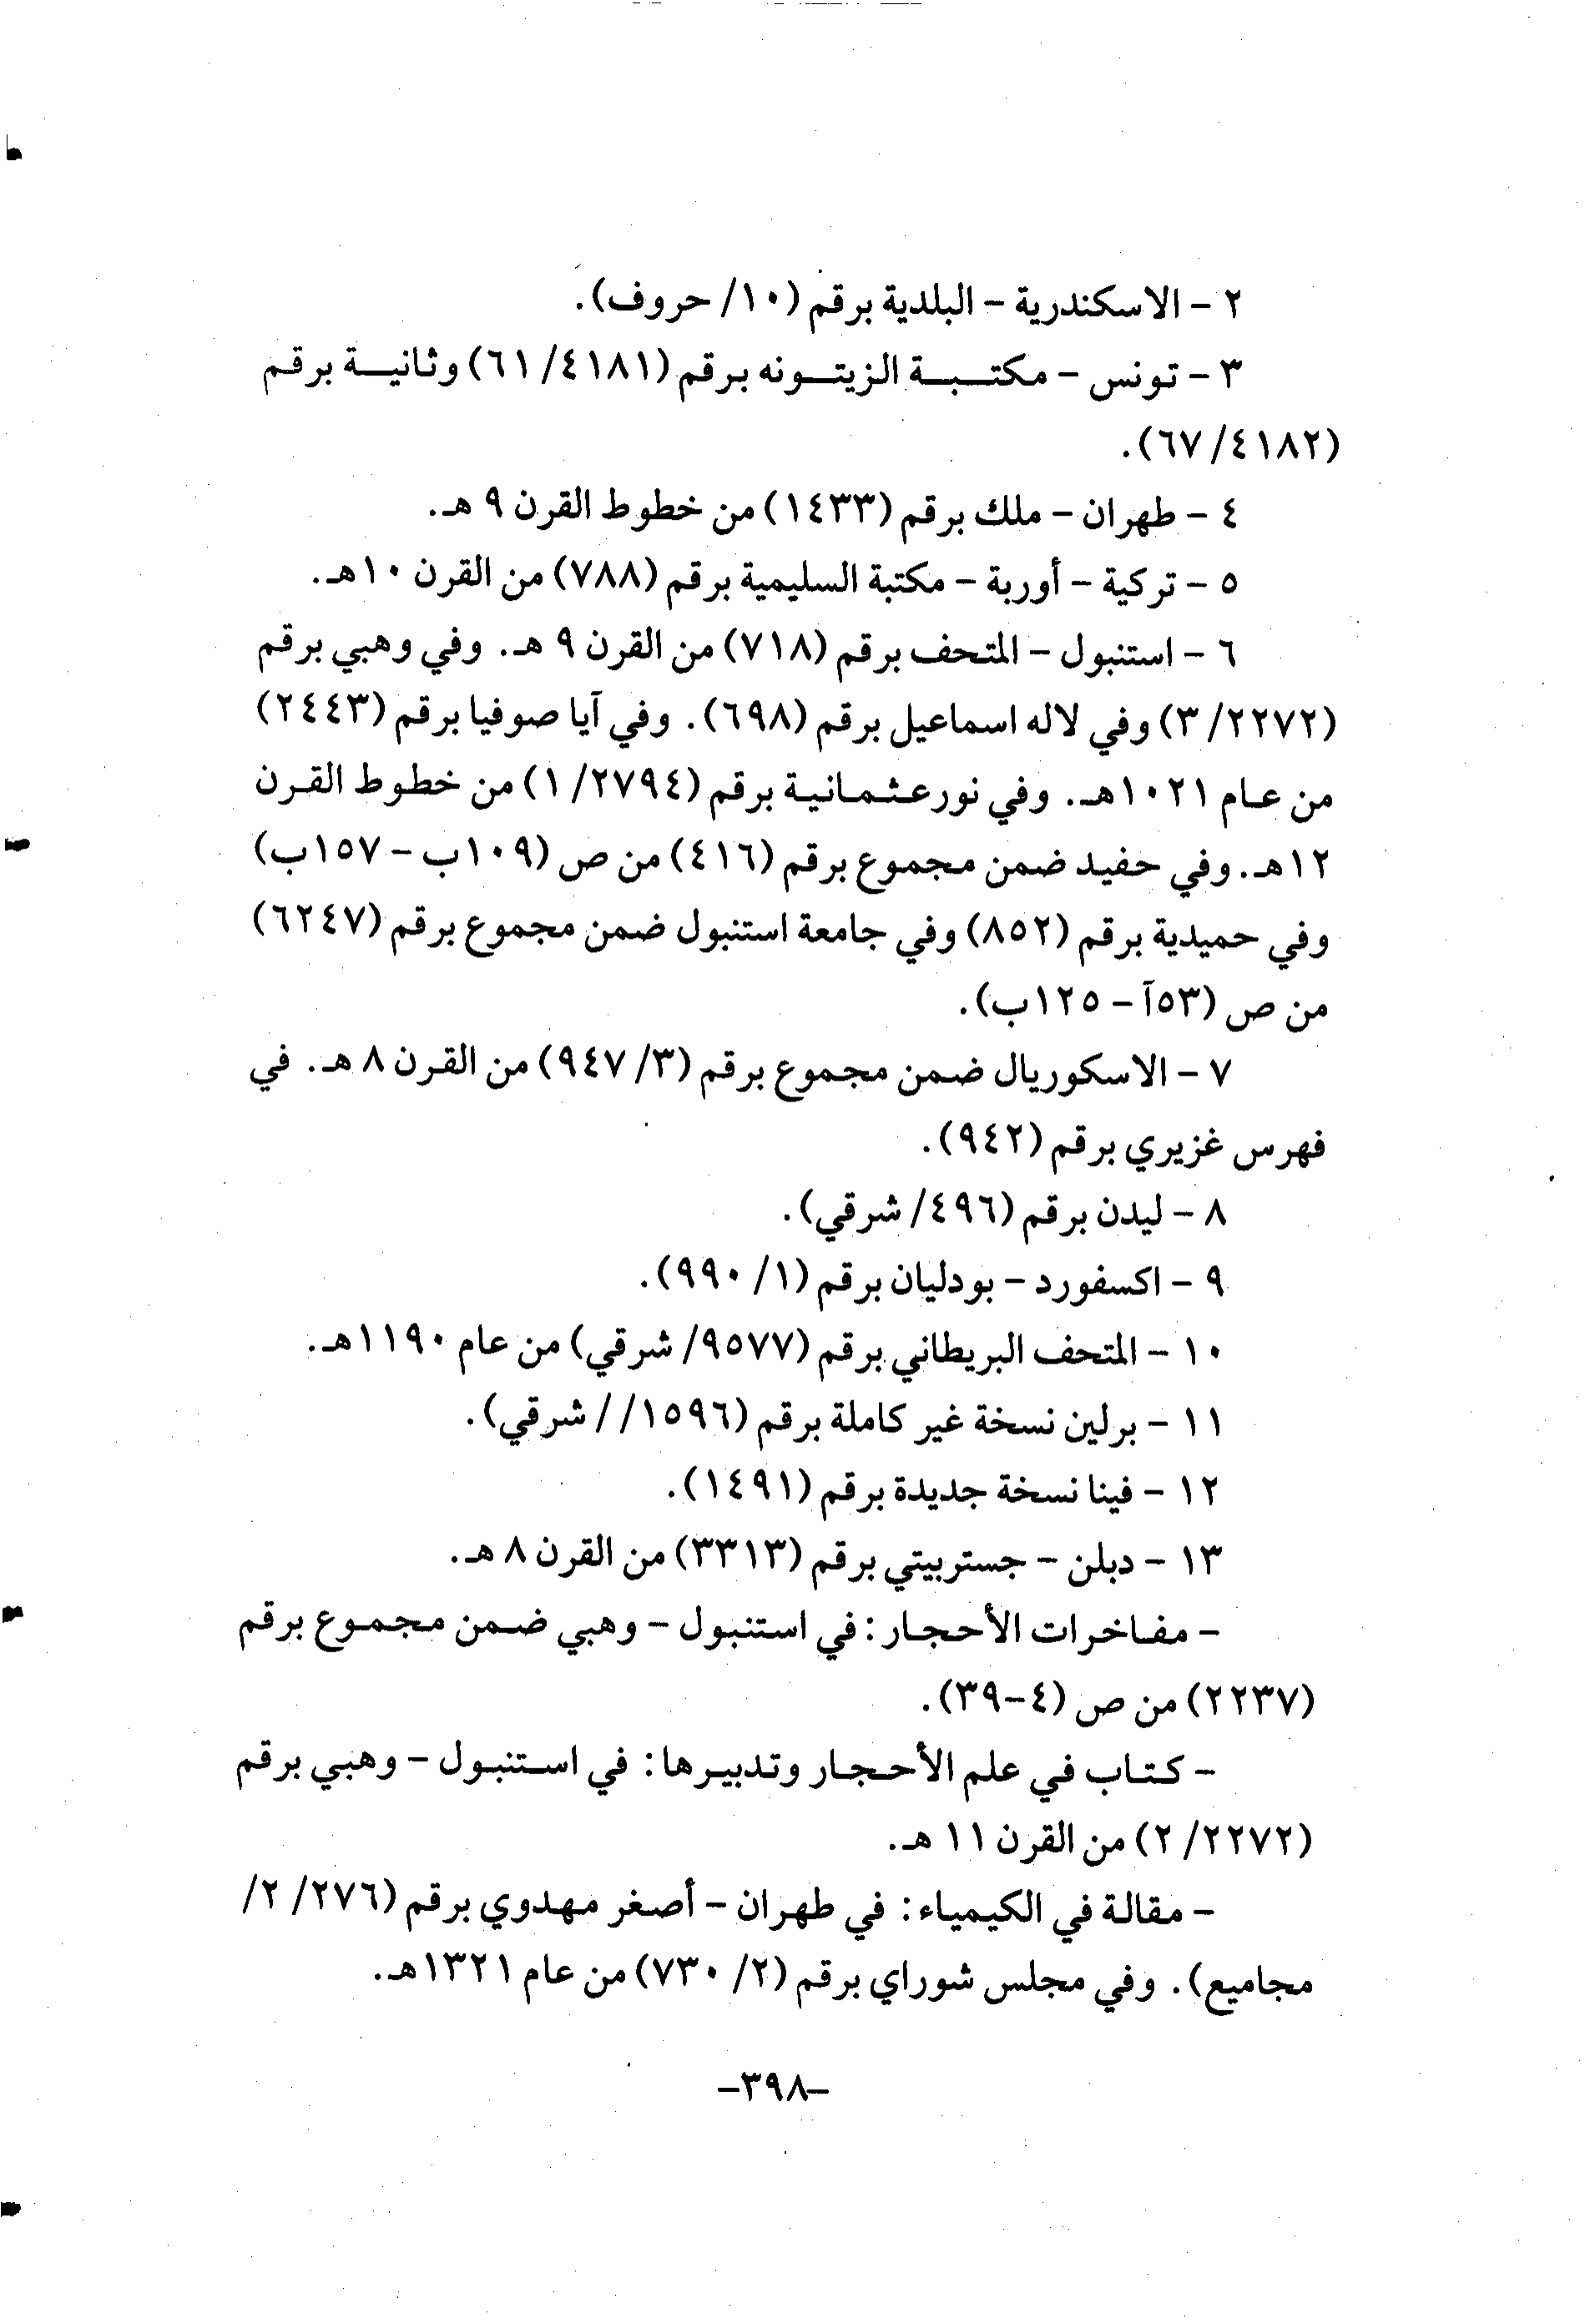 ٢ - الاسكندرية - البلدية برقم (١٠/ حروف).
٣ - تونس - مكتبة الزيتونه برقم (٦١/٤١٨١) وثانية برقم
(٦٧/٤١٨٢).
٤ - طهران - ملك برقم (١٤٣٣) من خطوط القرن ٩ هـ.
٥ - تركية - أوربة - مكتبة السليمية برقم (٧٨٨) من القرن ١٠هـ.
٦ - استنبول - المتحف برقم (٧١٨) من القرن ٩ هـ. وفي وهبي برقم
(٣/٢٢٧٢) وفي لاله اسماعيل برقم (٦٩٨). وفي آيا صوفيا برقم (٢٤٤٣)
من عام ١٠٢١هـ. وفي نورعثمانية برقم (١/٢٧٩٤) من خطوط القرن
١٢هـ. وفي حفيد ضمن مجموع برقم (٤١٦) من ص (١٠٩ب - ١٥٧ب)
وفي حميدية برقم (٨٥٢) وفي جامعة استنبول ضمن مجموع برقم (٦٢٤٧)
من ص (٥٣آ - ١٢٥ب).
٧ - الاسكوريال ضمن مجموع برقم (٩٤٧/٣) من القرن ٨ هـ. في
فهرس غزيري برقم (٩٤٢).
٨ - ليدن برقم (٤٩٦/ شرقي).
٩ - اكسفورد - بودليان برقم (٩٩٠/١).
١٠ - المتحف البريطاني برقم (٩٥٧٧/ شرقي) من عام ١١٩٠هـ.
١١ - برلين نسخة غير كاملة برقم (١٥٩٦// شرقي).
١٢ - فينا نسخة جديدة برقم (١٤٩١).
١٣ - دبلن - جستربيتي برقم (٣٣١٣) من القرن ٨ هـ.
- مفاخرات الأحجار: في استنبول - وهبي ضمن مجموع برقم
(٢٢٣٧) من ص (٤-٣٩).
- كتاب في علم الأحجار وتدبيرها: في استنبول - وهبي برقم
(٢/٢٢٧٢) من القرن ١١ هـ.
- مقالة في الكيمياء: في طهران - أصغر مهدوي برقم (٢٧٦/ ٢/
مجاميع). وفي مجلس شوراي برقم (٧٣٠/٢) من عام ١٣٢١هـ.
-٣٩٨-